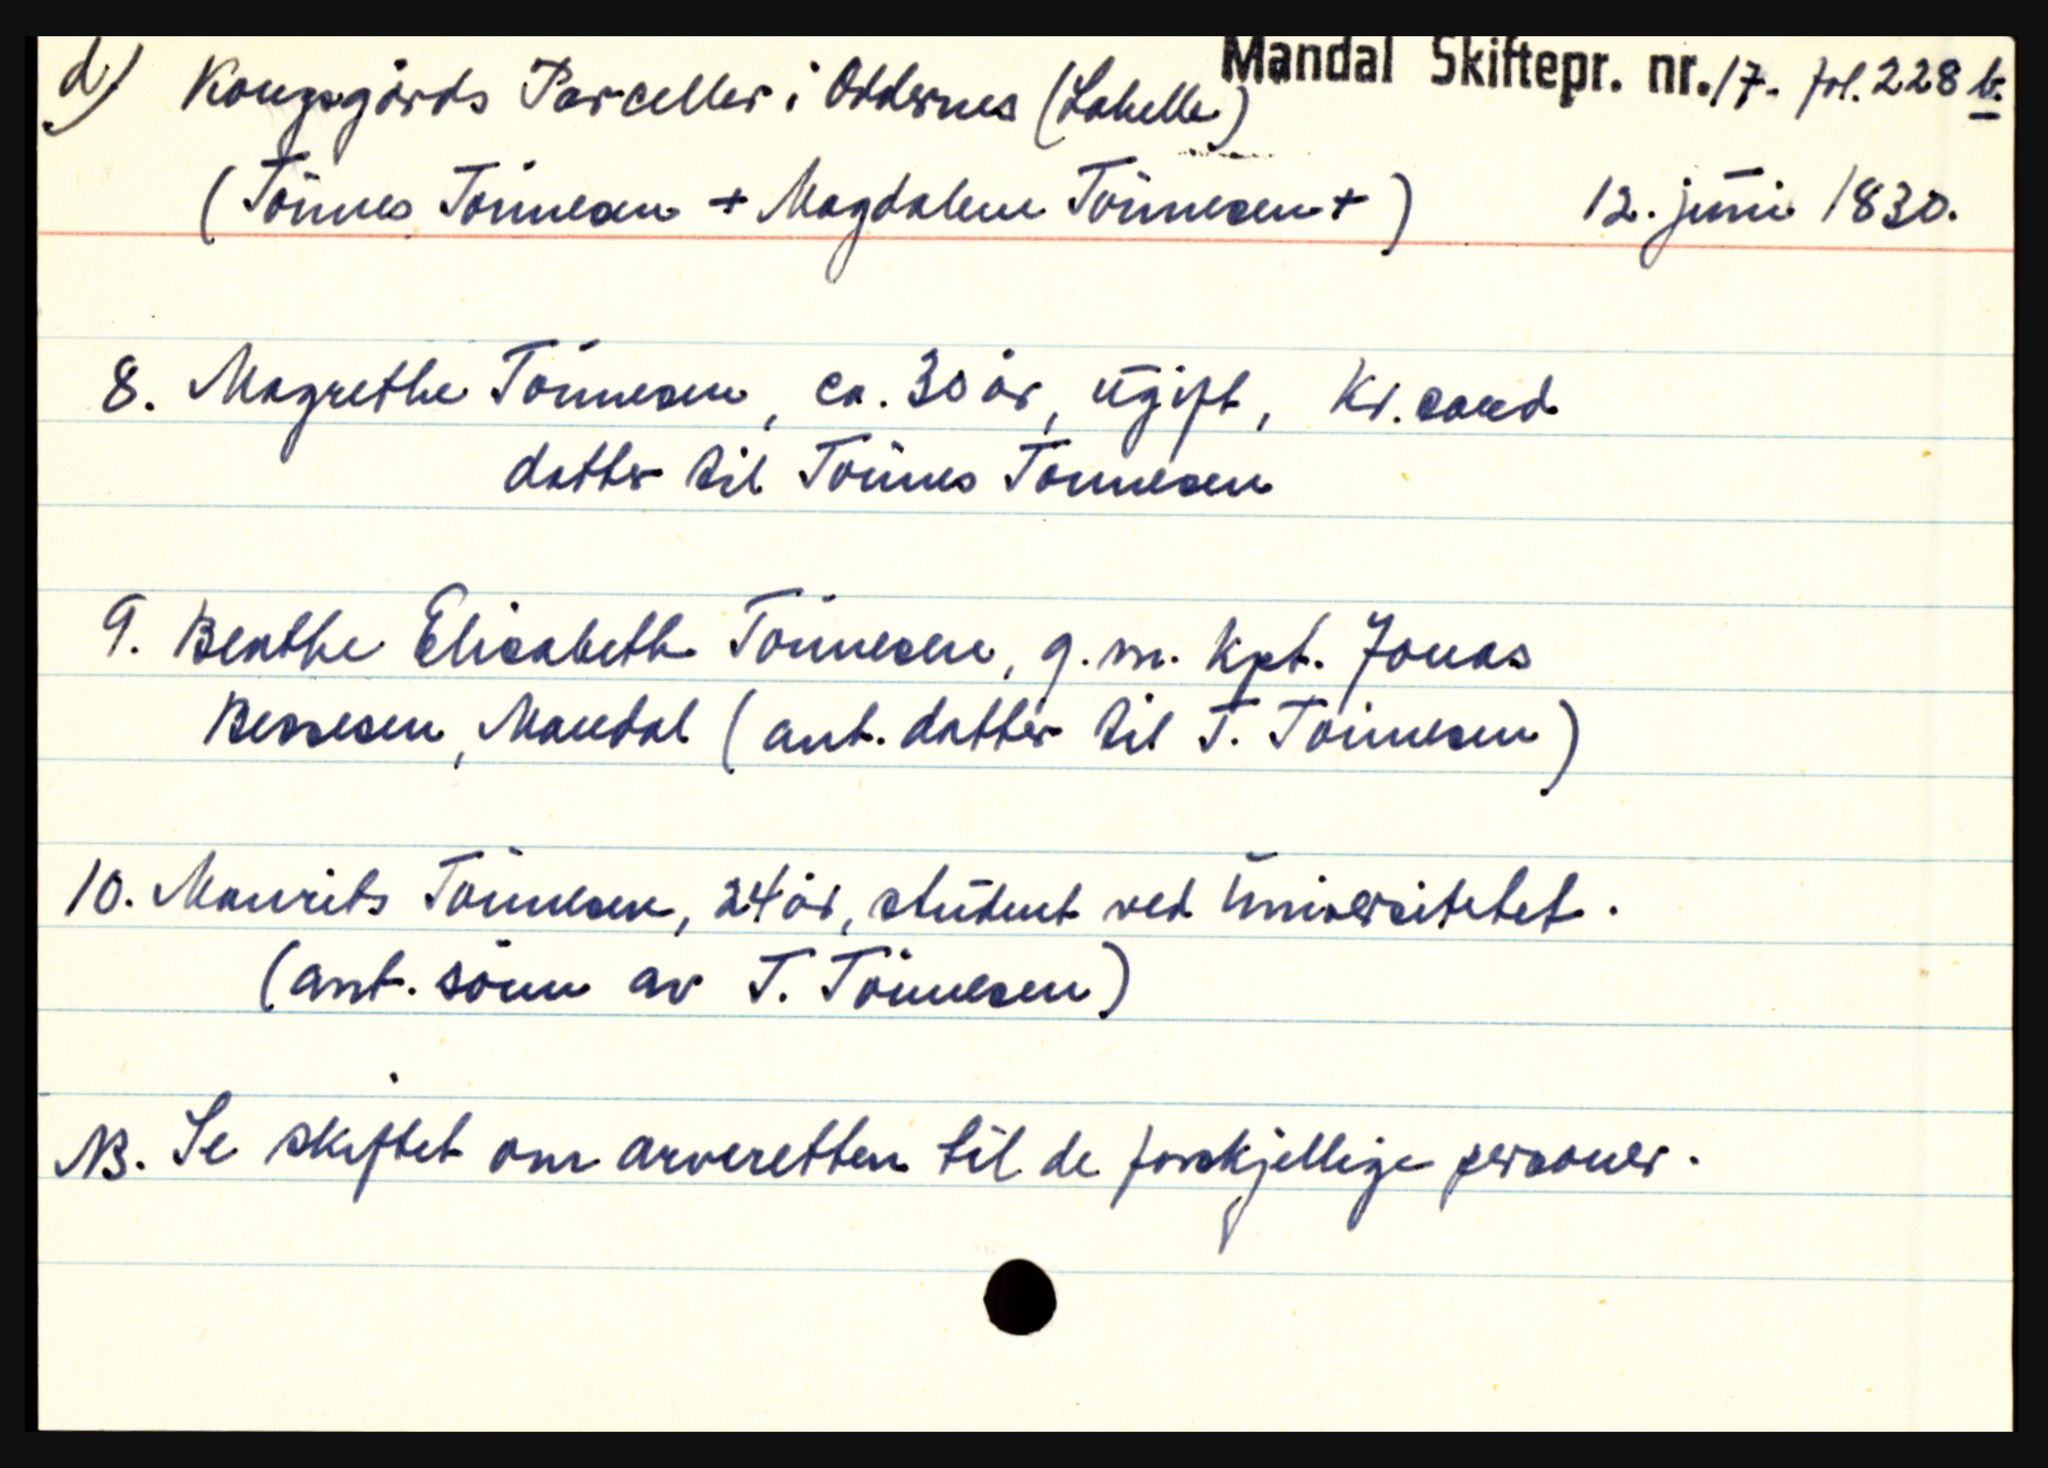 d) Kongsgårds Parceller i Oddernes (Labelle) Mandal Skiftepr. nr. 17. fol. 228 b.
(Tönnes Tönnesen + Magdalene Tönnesen +) 12. juni 1830.
8. Magrethe Tönnesen, ca. 30 år, ugift, Kr.sand
datter til Tönnes Tönnesen
9. Benthe Elisabeth Tönnesen, g.m. kpt. Jonas
Bessesen, Mandal (ant. datter til T. Tönnesen)
10. Maurits Tönnesen, 24 år, student ved Universitetet.
(ant. sönn av T. Tönnesen)
NB. Se skiftet om arveretten til de forskjellige personer.